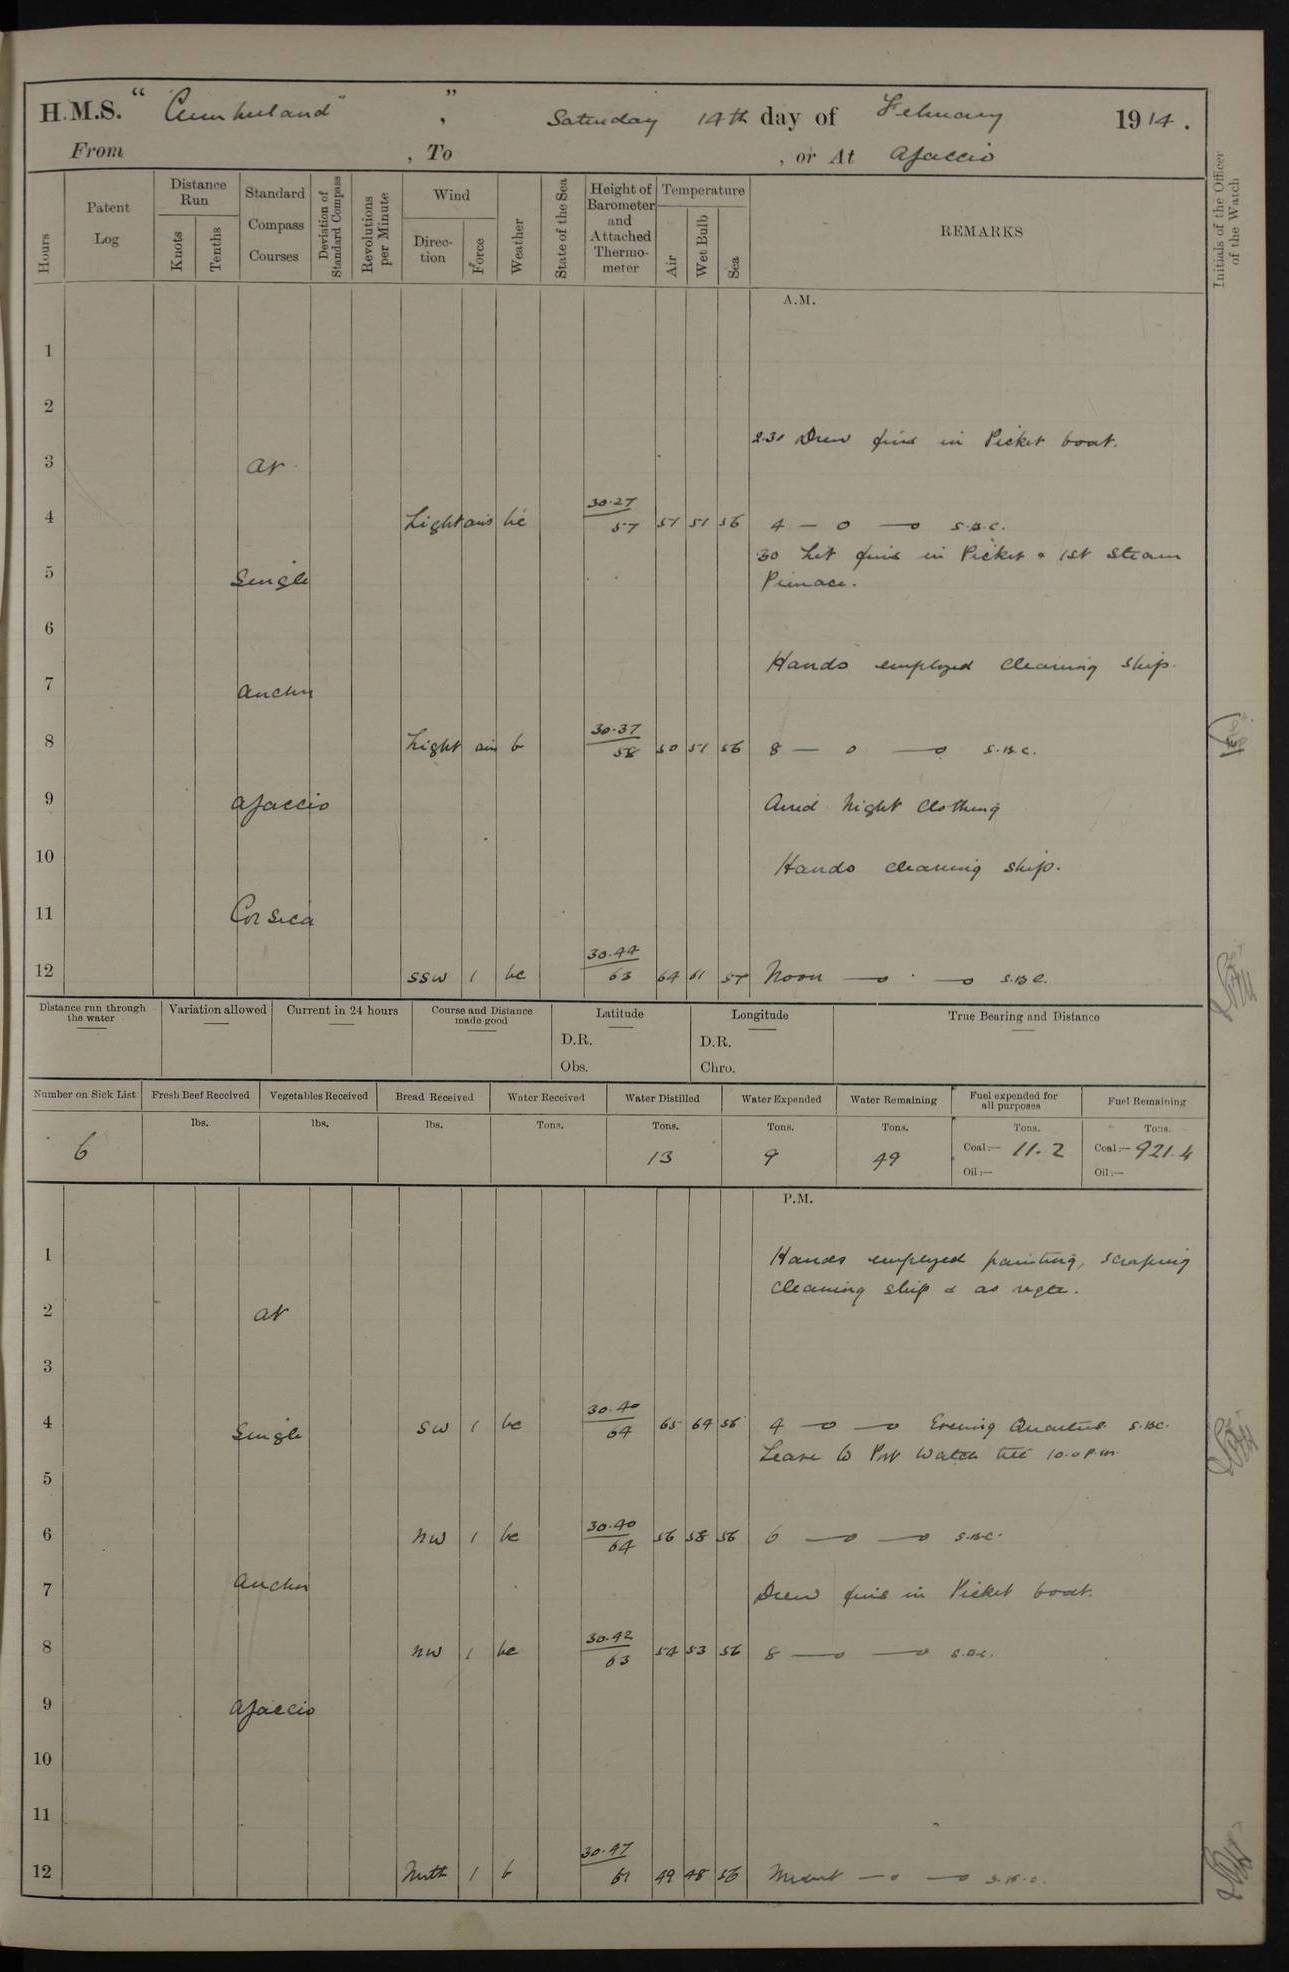 H.M.S. "Cumberland", Saturday 14th day of February 1914.
From , To , or At Ajaccio
Hours
Patent Log
Distance Run
Knots
Tenths
Standard Compass Courses
Deviation of Standard Compass
Revolutions per Minute
Wind
Direction
Force
Weather
State of the Sea
Height of Barometer and Attached Thermometer
Temperature
Air
Wet Bulb
Sea
REMARKS
Initials of the Officer of the Watch
A.M.
1
2
2.30 Drew fires in Picket boat.
3 At
4 Light airs bc 30.27 57 57 51 56 4 — o —o S.B.C.
30 Lit fires in Picket & 1st Steam
Pinnace.
5 Single
6
Hands employed cleaning ship.
7 anchor
8 Light airs b 30.37 58 50 51 56 8 — o —o S.B.C.
9 Ajaccio Aired night clothing
10 Hands cleaning ship.
11 Corsica
12 SSW 1 bc 30.44 63 64 61 57 Noon —o . —o S.B.C.
Distance run through the water
Variation allowed
Current in 24 hours
Course and Distance made good
Latitude
D.R.
Obs.
Longitude
D.R.
Chro.
True Bearing and Distance
Number on Sick List Fresh Beef Received Vegetables Received Bread Received Water Received Water Distilled Water Expended Water Remaining Fuel expended for all purposes Fuel Remaining
lbs. lbs. lbs. Tons. Tons. Tons. Tons. Tons. Tons.
6 13 9 49 Coal:— 11.2 Coal:— 921.4
Oil:— Oil:—
P.M.
1 Hands employed painting, scraping
cleaning ship & as reqte.
2 At
3
4 Single SW 1 bc 30.40 64 65 64 56 4 —o —o Evening Quarters S.B.C.
Leave to Port Watch till 10.0 p.m.
5
6 NW 1 bc 30.40 64 56 58 56 6 —o —o S.B.C.
7 anchor Drew fires in Picket boat.
8 NW 1 bc 30.42 63 54 53 56 8 —o —o S.B.C.
9 Ajaccio
10
11
12 North 1 b 30.47 61 49 48 56 Midnt —o —o S.B.C.